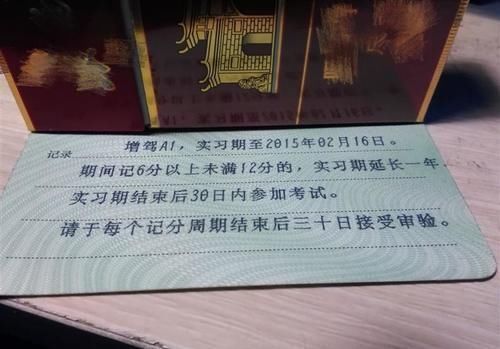 记录 增驾A1，实习期至2015年02月16日。
期间记6分以上未满12分的，实习期延长一年.
实习期结束后30日内参加考试。
请于每个记分周期结束后三十日接受审验。